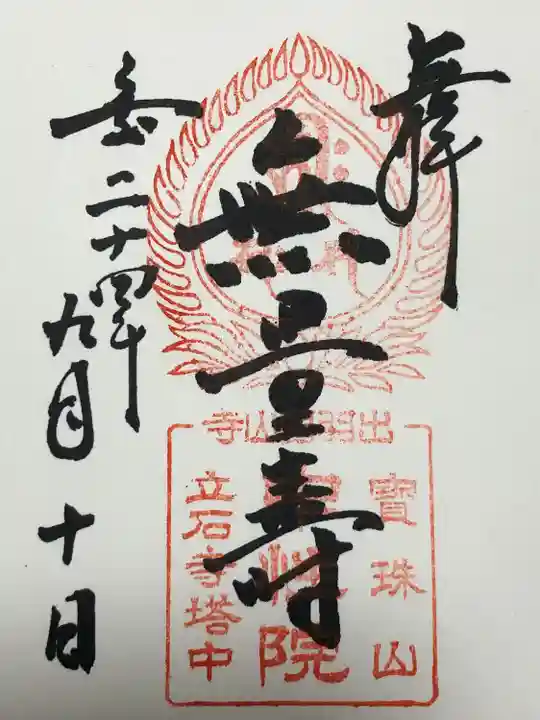 奉拝
無量壽
二十四年九月十日
出羽
山寺
寶珠山
院
立石寺塔中